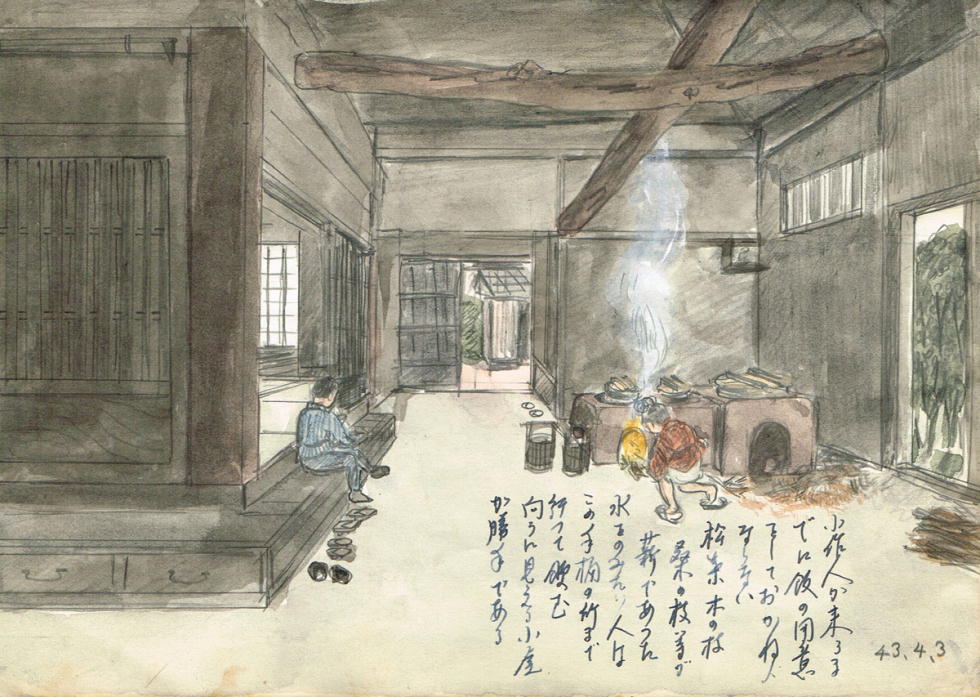 小作人が来るま
でに飯の用意
をしておかねば
ならない
松葉 木の枝
桑の枝等が
薪であった
水をのみたい人は
この手桶の所まで
行って飲む
向うに見える小屋
が勝手である
43.4.3